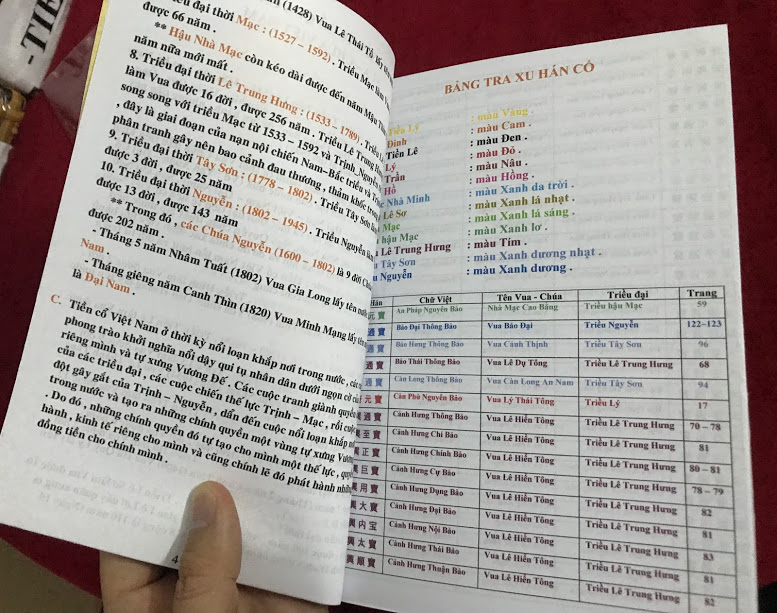 - TIỀ
(1428) Vua Lê Thái Tổ, lấy
triều đại thời Mạc : (1527 – 1592) . Triều Mạc làm
được 66 năm .
** Hậu Nhà Mạc còn kéo dài được đến năm Mậu
năm nữa mới mất .
8. Triều đại thời Lê Trung Hưng : (1533 – 1789) . Triều Lê
làm Vua được 16 đời , được 256 năm . Triều Lê Trung Hưng
song song với triều Mạc từ 1533 – 1592 và Trịnh_Nguyễn
, đây là giai đoạn của nạn nội chiến Nam–Bắc triều và Trịnh
phân tranh gây nên bao cảnh đau thương , thảm khốc trong
9. Triều đại thời Tây Sơn : (1778 – 1802) . Triều Tây Sơn làm
được 3 đời , được 25 năm
10. Triều đại thời Nguyễn : (1802 – 1945) . Triều Nguyễn làm
được 13 đời , được 143 năm
** Trong đó , các Chúa Nguyễn (1600 – 1802) là 9 đời Chúa
được 202 năm .
- Tháng 5 năm Nhâm Tuất (1802) Vua Gia Long lấy tên nước
Nam .
- Tháng giêng năm Canh Thìn (1820) Vua Minh Mạng lấy tên
là Đại Nam .
C. Tiền cổ Việt Nam ở thời kỳ nổi loạn khắp nơi trong nước , các
phong trào khởi nghĩa nổi dậy qui tụ nhân dân dưới ngọn cờ của
riêng mình và tự xưng Vương Đế . Các cuộc tranh giành quyền
của các triều đại , các cuộc chiến thế lực Trịnh – Mạc , rồi cuộc
đột gây gắt của Trịnh – Nguyễn , dẩn đến cuộc nổi loạn khắp nơi
trong nước và tạo ra những chính quyền một vùng tự xưng Vương
. Do đó , những chính quyền đó tự tạo cho mình một thế lực , quyền
hành , kinh tế riêng cho mình và cũng chính lẽ đó phát hành những
đồng tiền cho chính mình .
4
BẢNG TRA XU HÁN CỔ
Tiền Lý : màu Vàng .
Đinh : màu Cam .
Tiền Lê : màu Đen .
Lý : màu Đỏ .
Trần : màu Nâu .
Hồ : màu Hồng .
Nhà Minh : màu Xanh da trời .
Lê Sơ : màu Xanh lá nhạt .
Mạc : màu Xanh lá sáng .
hậu Mạc : màu Xanh lơ .
Lê Trung Hưng : màu Tím .
Tây Sơn : màu Xanh dương nhạt .
Nguyễn : màu Xanh dương .
Hán Chữ Việt Tên Vua - Chúa Triều đại Trang
元 寶 An Pháp Nguyên Bảo Nhà Mạc Cao Bằng Triều hậu Mạc 59
通 寶 Bảo Đại Thông Bảo Vua Bảo Đại Triều Nguyễn 122–123
通 寶 Bảo Hưng Thông Bảo Vua Cảnh Thịnh Triều Tây Sơn 96
通 寶 Bảo Thái Thông Bảo Vua Lê Dụ Tông Triều Lê Trung Hưng 68
通 寶 Càn Long Thông Bảo Vua Càn Long An Nam Triều Tây Sơn 94
元 寶 Càn Phù Nguyên Bảo Vua Lý Thái Tông Triều Lý 17
興 通 寶 Cảnh Hưng Thông Bảo Vua Lê Hiển Tông Triều Lê Trung Hưng 70 – 78
興 至 寶 Cảnh Hưng Chí Bảo Vua Lê Hiển Tông Triều Lê Trung Hưng 81
興 正 寶 Cảnh Hưng Chính Bảo Vua Lê Hiển Tông Triều Lê Trung Hưng 80 – 81
興 巨 寶 Cảnh Hưng Cự Bảo Vua Lê Hiển Tông Triều Lê Trung Hưng 78 – 79
興 用 寶 Cảnh Hưng Dụng Bảo Vua Lê Hiển Tông Triều Lê Trung Hưng 82
興 大 寶 Cảnh Hưng Đại Bảo Vua Lê Hiển Tông Triều Lê Trung Hưng 81
興 内 宝 Cảnh Hưng Nội Bảo Vua Lê Hiển Tông Triều Lê Trung Hưng 83
興 太 寶 Cảnh Hưng Thái Bảo Vua Lê Hiển Tông Triều Lê Trung Hưng 81
興 順 寶 Cảnh Hưng Thuận Bảo Vua Lê Hiển Tông Triều Lê Trung Hưng 82